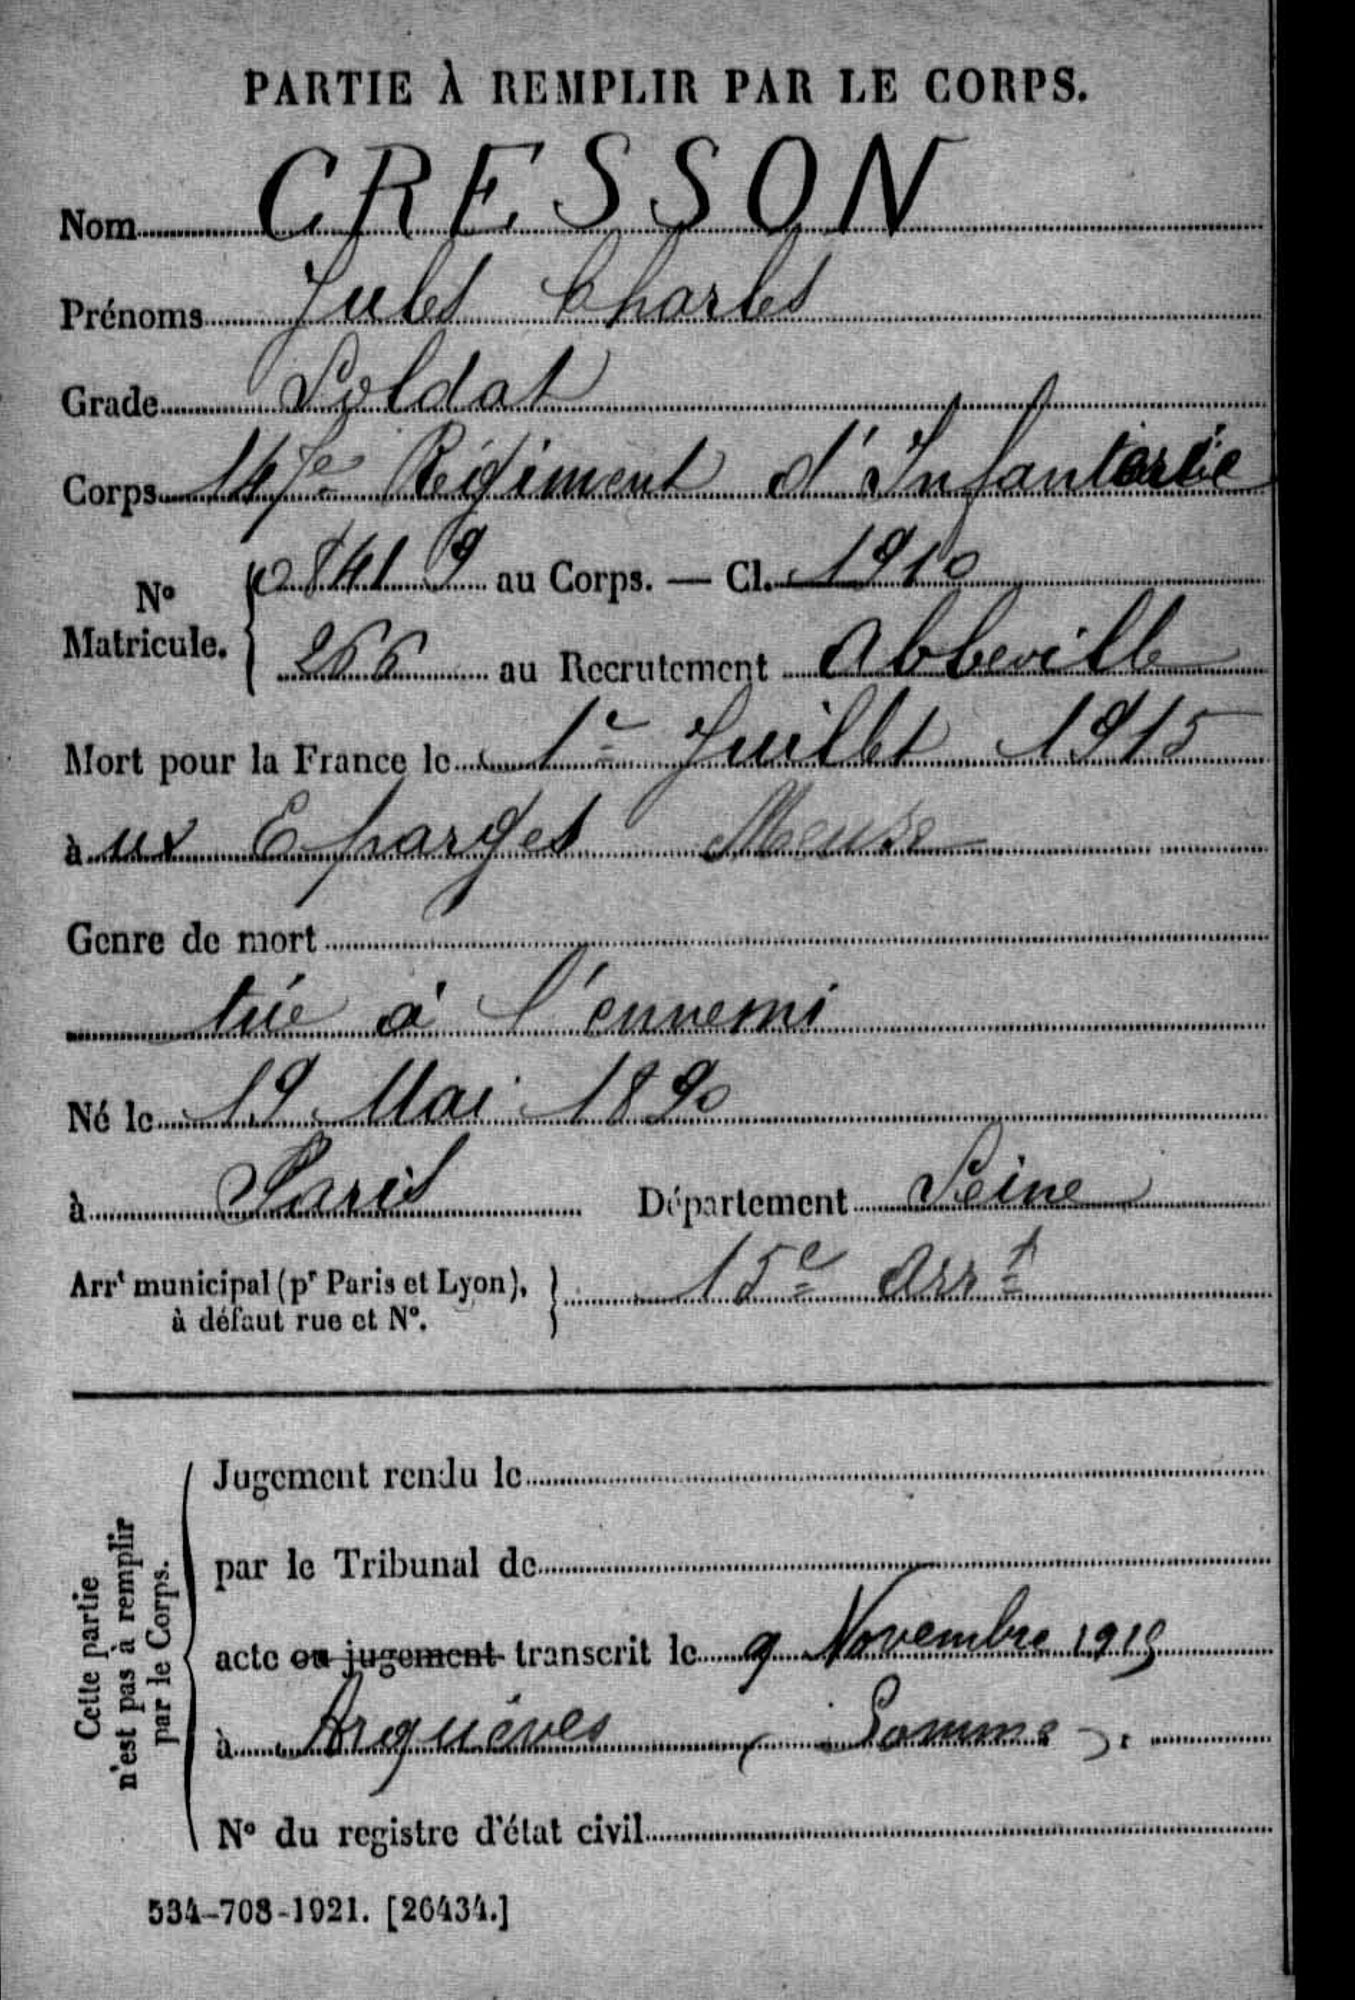 PARTIE À REMPLIR PAR LE CORPS.
Nom CRESSON
Prénoms Jules Charles
Grade Soldat
Corps 147e Régiment d'Infanterie
N° Matricule. 8419 au Corps. — Cl. 1910
266 au Recrutement Abbeville
Mort pour la France le 1er Juillet 1915
à ux Eparges Meuse
Genre de mort
tué à l'ennemi
Né le 19 Mai 1890
à Paris Département Seine
Arrt municipal (pr Paris et Lyon), à défaut rue et N°. 15e Arrt
Cette partie n'est pas à remplir par le Corps.
Jugement rendu le
par le Tribunal de
acte ou jugement transcrit le 9 Novembre 1915
à Arquèves (Somme).
N° du registre d'état civil
534-708-1921. [26434.]